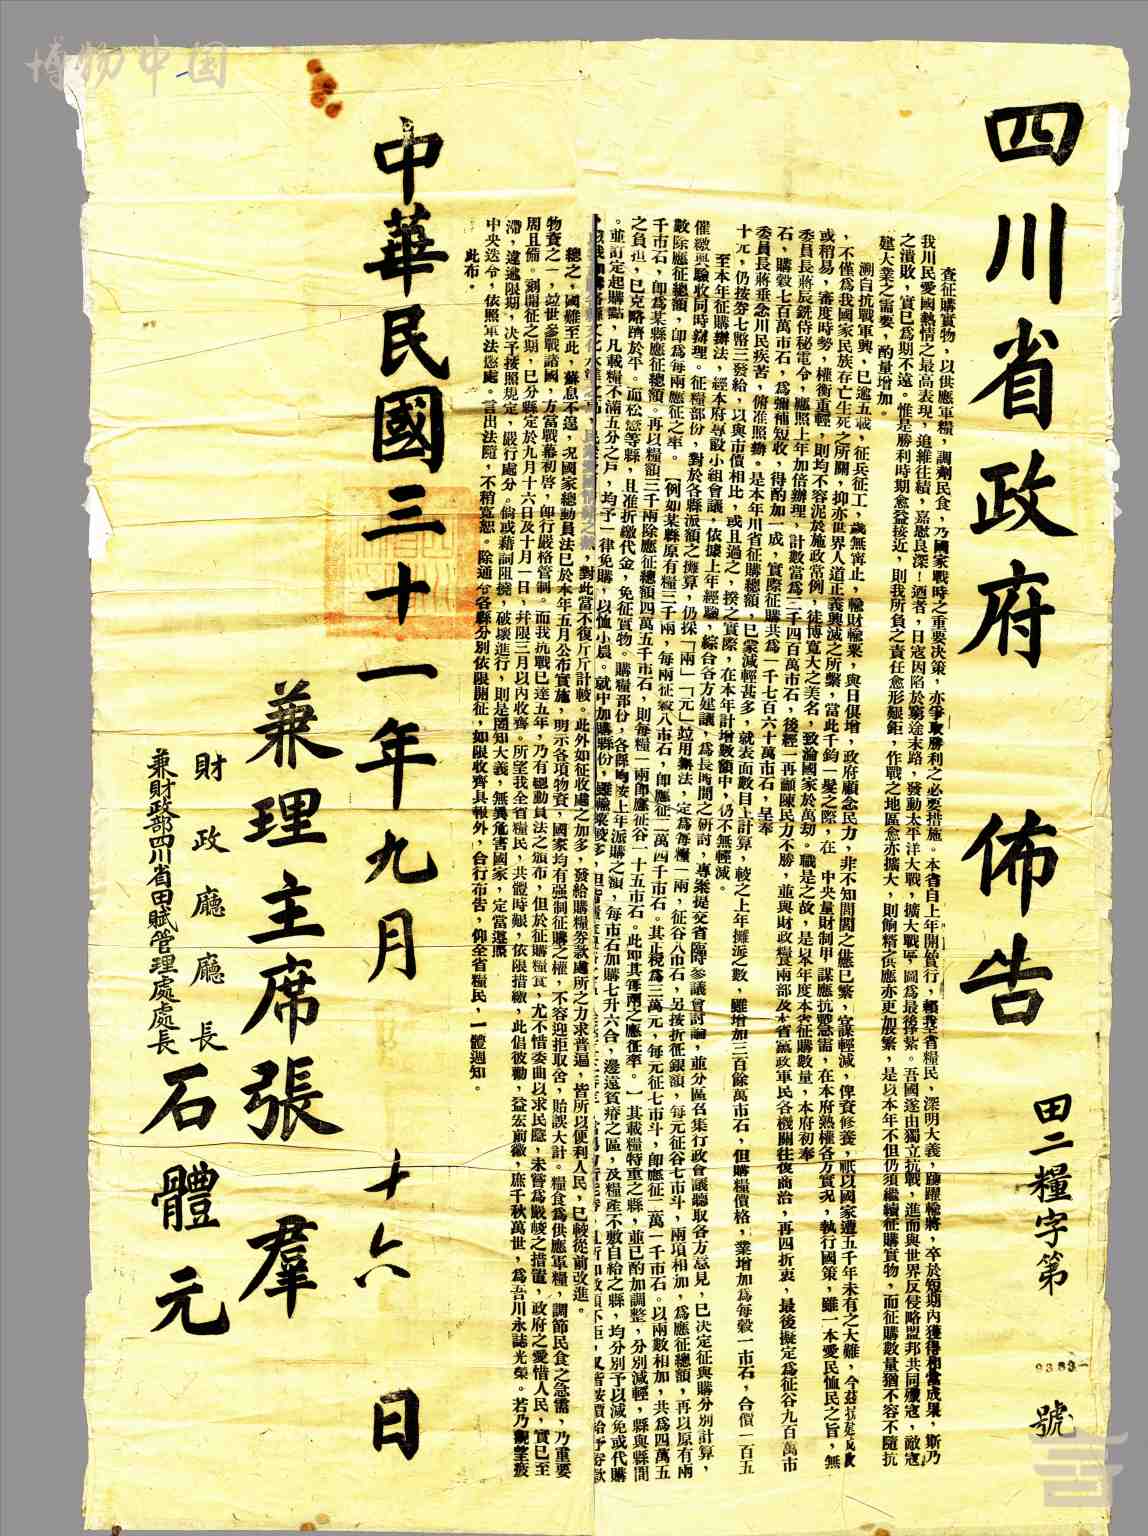 四川省政府佈告
田二糧字第9383號
查征購實物，以供應軍糧，調劑民食，乃國家戰時之重要决策，亦爭取勝利之必要措施。本省自上年開始實行，賴我全省糧民，深明大義，踴躍輸將，卒於短期內獲得相當成果，斯乃
我川民愛國熱情之最高表現，追維往績，嘉慰良深！迺者，日寇因陷於窮途末路，發動太平洋大戰，擴大戰區，圖為最後掙紮。吾國遂由獨立抗戰，進而與世界反侵略盟邦共同殲寇，敵寇
之潰敗，實已為期不遠。惟是勝利時期愈益接近，則我所負之責任愈形艱鉅，作戰之地區愈亦擴大，則餉糈之供應亦更加繁，是以本年不但仍須繼續征購實物，而征購數量猶不容不隨抗
建大業之需要，酌量增加。
溯自抗戰軍興，已逾五載，征兵征工，歲無寗止，輸財輸粟，與日俱增，政府顧念民力，非不知閭閻之供應已繁，宜謀輕減，俾資修養，祇以國家遭五千年未有之大難，今茲抗建成敗
，不僅為我國家民族存亡生死之所關，抑亦世界人道正義興滅之所繫，當此千鈞一髮之際，在　中央量財制用，謀應抗戰急需，在本府熟權各方實况，執行國策，雖一本愛民恤民之旨，無
或稍易，審度時勢，權衡重輕，則均不容泥於施政常例，徒博寬大之美名，致淪國家於萬劫。職是之故，是以本年度本省征購數量，本府初奉
委員長蔣辰銑侍秘電令，應照上年加倍辦理，計數當為三千四百萬市石，後經一再顧陳民力不勝，並與財政糧食兩部及本省黨政軍民各機關往復商洽，再四折衷，最後擬定為征谷九百萬市
石，購穀七百萬市石，為彌補短收，得酌加一成，實際征購共為一千七百六十萬市石，呈奉
委員長蔣垂念川民疾苦，俯准照辦。是本年川省征購總額，已蒙減輕甚多，就表面數目上計算，較之上年攤派之數，雖增加三百餘萬市石，但購糧價格，業增加為每穀一市石，合價一百五
十元，仍按券七幣三發給，以與市價相比，或且過之，揆之實際，在本年計增數額中，仍不無輕減。
至本年征購辦法，經本府專設小組會議，依據上年經驗，綜合各方建議，為長時間之研討，專案提交省臨時參議會討論，並分區召集行政會議聽取各方意見，已决定征與購分別計算，
催繳與驗收同時辦理。征糧部份，對於各縣派額之攤算，仍採「兩」「元」竝用辦法，定為每糧一兩，征谷八市石，另按折征銀額，每元征谷七市斗，兩項相加，為應征總額，再以原有兩
數除應征總額，即為每兩應征之率。［例如某縣原有糧三千兩，每兩征穀八市石，即應征二萬四千市石。其正稅為三萬元，每元征七市斗，即應征二萬一千市石。以兩數相加，共為四萬五
千市石，即為某縣應征總額。再以糧額三千兩除應征總額四萬五千市石，則每糧一兩即應征谷一十五市石。此即其每兩之應征率。］其載糧特重之縣，並已酌加調整，分別減輕，縣與縣間
之負担，已克略躋於平。而松懋等縣，且准折繳代金，免征實物。購糧部份，各縣均按上年派購之額，每市石加購七升六合，邊遠貧瘠之區，及糧產不敷自給之縣，均分別予以減免或代購
。並訂定起購點，凡載糧不滿五分之戶，均予一律免購，以恤小農。就中加購縣份，
對此當不復斤斤計較。此外如征收處之加多，發給購糧券款處所之力求普遍，皆所以便利人民，已較從前改進。
總之，國難至此，蘇息不遑，况國家總動員法已於本年五月公布實施，明示各項物資，國家均有强制征購之權，不容迎拒取舍，貽誤大計。糧食為供應軍糧，調節民食之急需，乃重要
物資之一，竝世參戰諸國，方當戰幕初啓，即行嚴格管制。而我抗戰已達五年，乃有總動員法之頒布，但於征購糧食，尤不惜委曲以求民隱，未嘗為嚴峻之措置，政府之愛惜人民，實已至
周且備。剗開征之期，已分縣定於九月十六日及十月一日，幷限三月以內收齊。所望我全省糧民，共體時艱，依限措繳，此倡彼勸，益宏前徽，庶千秋萬世，為吾川永誌光榮。若乃觀望疲
滯，違逾限期，决予按照規定，嚴行處分。倘或藉詞阻撓，破壞進行，則是罔知大義，無異危害國家，定當遵照
中央迭令，依照軍法懲處。言出法隨，不稍寬恕。除通令各縣分別依限開征，如限收齊具報外，合行布告，仰全省糧民，一體週知。
此布。
中華民國三十一年九月十六日
兼理主席張羣
財政廳廳長
兼財政部四川省田賦管理處處長
石體元
博物中国